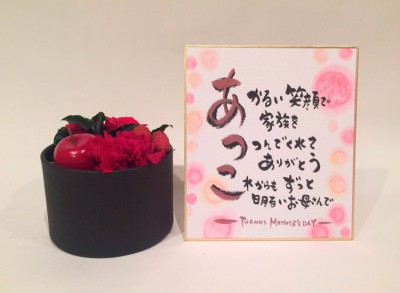 あかるい笑顔で
家族を
つつんでくれて
ありがとう
これからもずっと
明るいお母さんで
THANKS MOTHER'S DAY